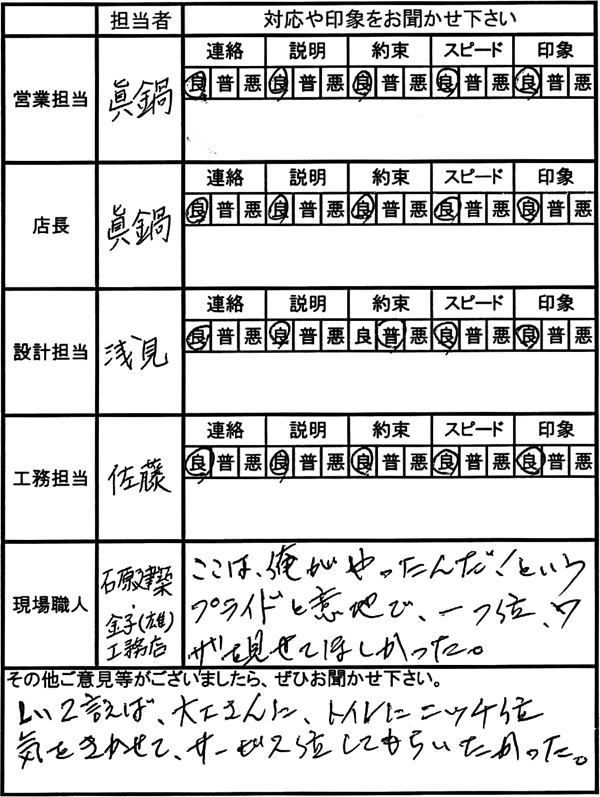 担当者 対応や印象をお聞かせ下さい
営業担当 眞鍋
連絡 説明 約束 スピード 印象
良 普 悪 良 普 悪 良 普 悪 良 普 悪 良 普 悪
店長 眞鍋
連絡 説明 約束 スピード 印象
良 普 悪 良 普 悪 良 普 悪 良 普 悪 良 普 悪
設計担当 浅見
連絡 説明 約束 スピード 印象
良 普 悪 良 普 悪 良 普 悪 良 普 悪 良 普 悪
工務担当 佐藤
連絡 説明 約束 スピード 印象
良 普 悪 良 普 悪 良 普 悪 良 普 悪 良 普 悪
現場職人
石原建築
・
金子(雄)
工務店
ここは、俺がやったんだ!という
プライドと意地で、一つ位、ワ
ザを見せてほしかった。
その他ご意見等がございましたら、ぜひお聞かせ下さい。
しいて言えば、大工さんに、トイレにニッチ位
気をきかせて、サービス位してもらいたかった。